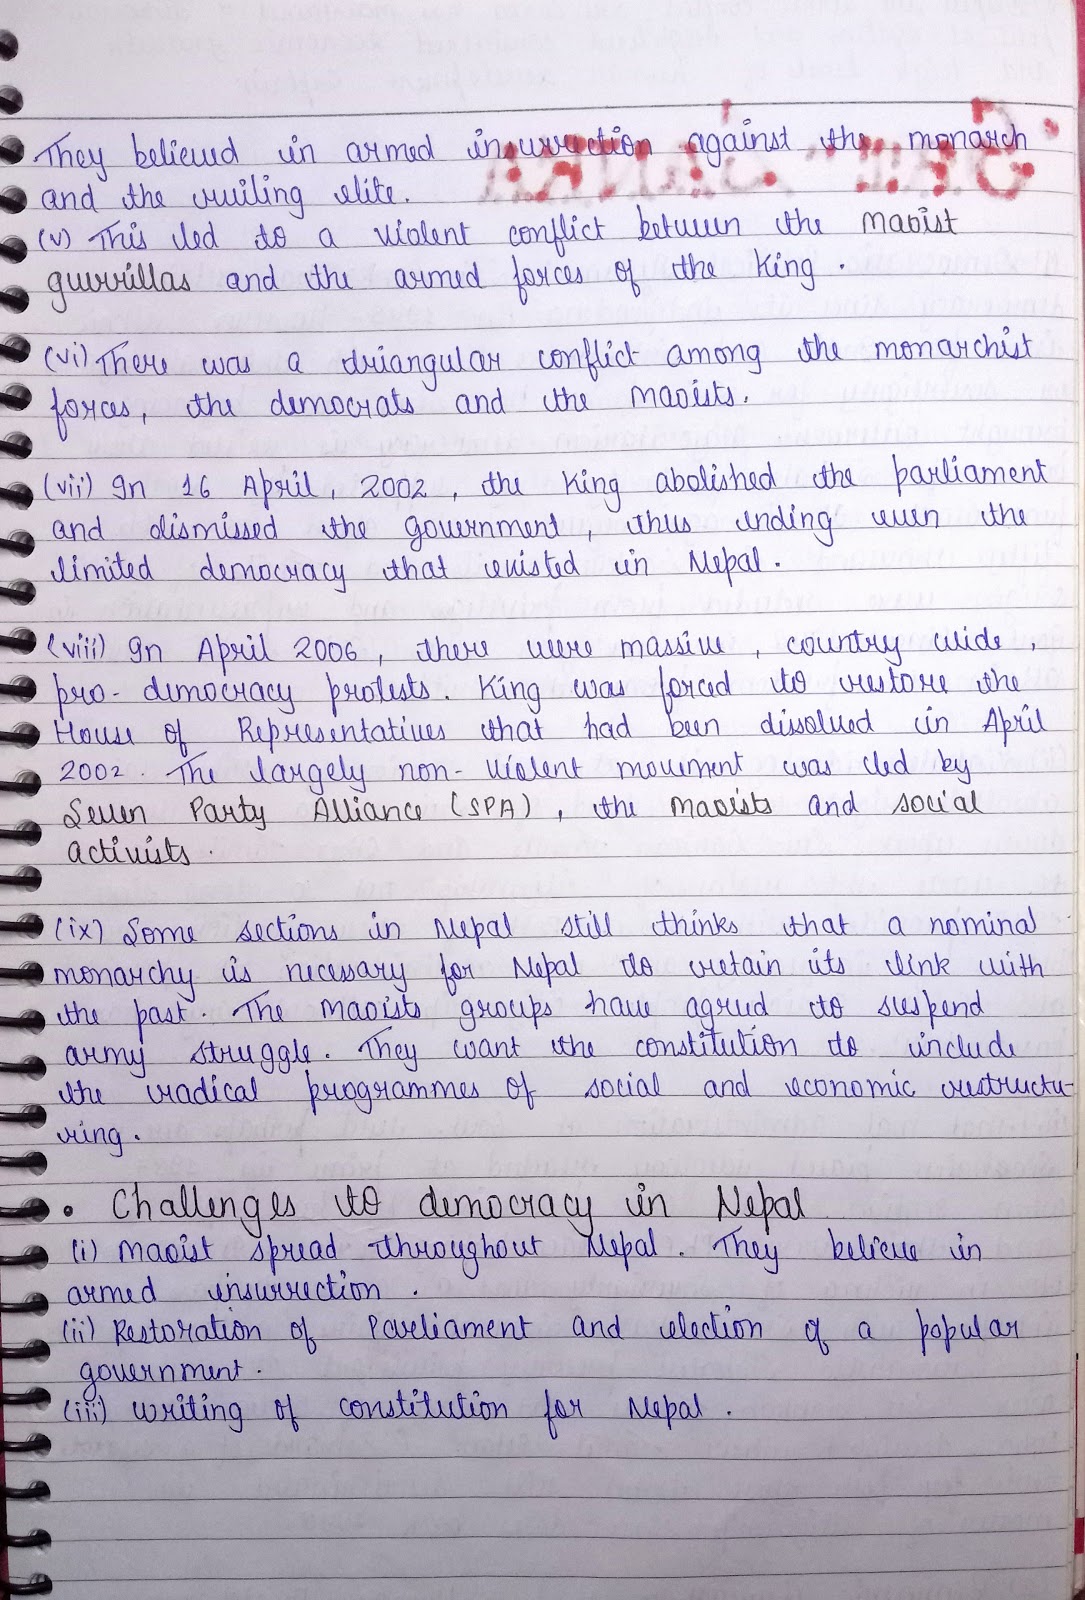 They believed in armed insurrection against the monarch
and the ruiling elite.
(v) This led to a violent conflict between the maoist
guerrillas and the armed forces of the King.
(vi) There was a triangular conflict among the monarchist
forces, the democrats and the maoists.
(vii) In 16 April, 2002, the King abolished the parliament
and dismissed the government, thus ending even the
limited democracy that existed in Nepal.
(viii) In April 2006, there were massive, country wide,
pro-democracy protests. King was forced to restore the
House of Representatives that had been dissolved in April
2002. The largely non-violent movement was led by
Seven Party Alliance (SPA), the maoists and social
activists.
(ix) Some sections in Nepal still thinks that a nominal
monarchy is necessary for Nepal to retain its link with
the past. The maoists groups have agreed to suspend
army struggle. They want the constitution to include
the radical programmes of social and economic restructu-
ring.
• Challenges to democracy in Nepal
(i) Maoist spread throughout Nepal. They believe in
armed insurrection.
(ii) Restoration of Parliament and election of a popular
government.
(iii) writing of constitution for Nepal.